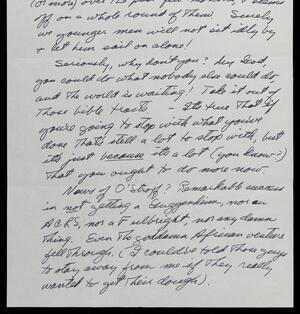 (or more) over the past few months, &
off on a whole round of them. Surely
we younger men will not sit idly by
& let him sail on alone!
Seriously, why don't you? My God,
you could do what nobody else could do,
and the world is waiting! Take it out of
those bible tracts - It's true that if
you're going to stop with what you've
done that's still a lot to stop with, but
it's just because it's a lot (you know?)
that you ought to do more now.
News of O'Stroff? Remarkable success
in not getting a Guggenheim, nor an
ACLS, nor a Fulbright, nor any damn
thing. Even the goddamn African venture
fell through. (I could've told those guys
to stay away from me if they really
wanted to get their dough).